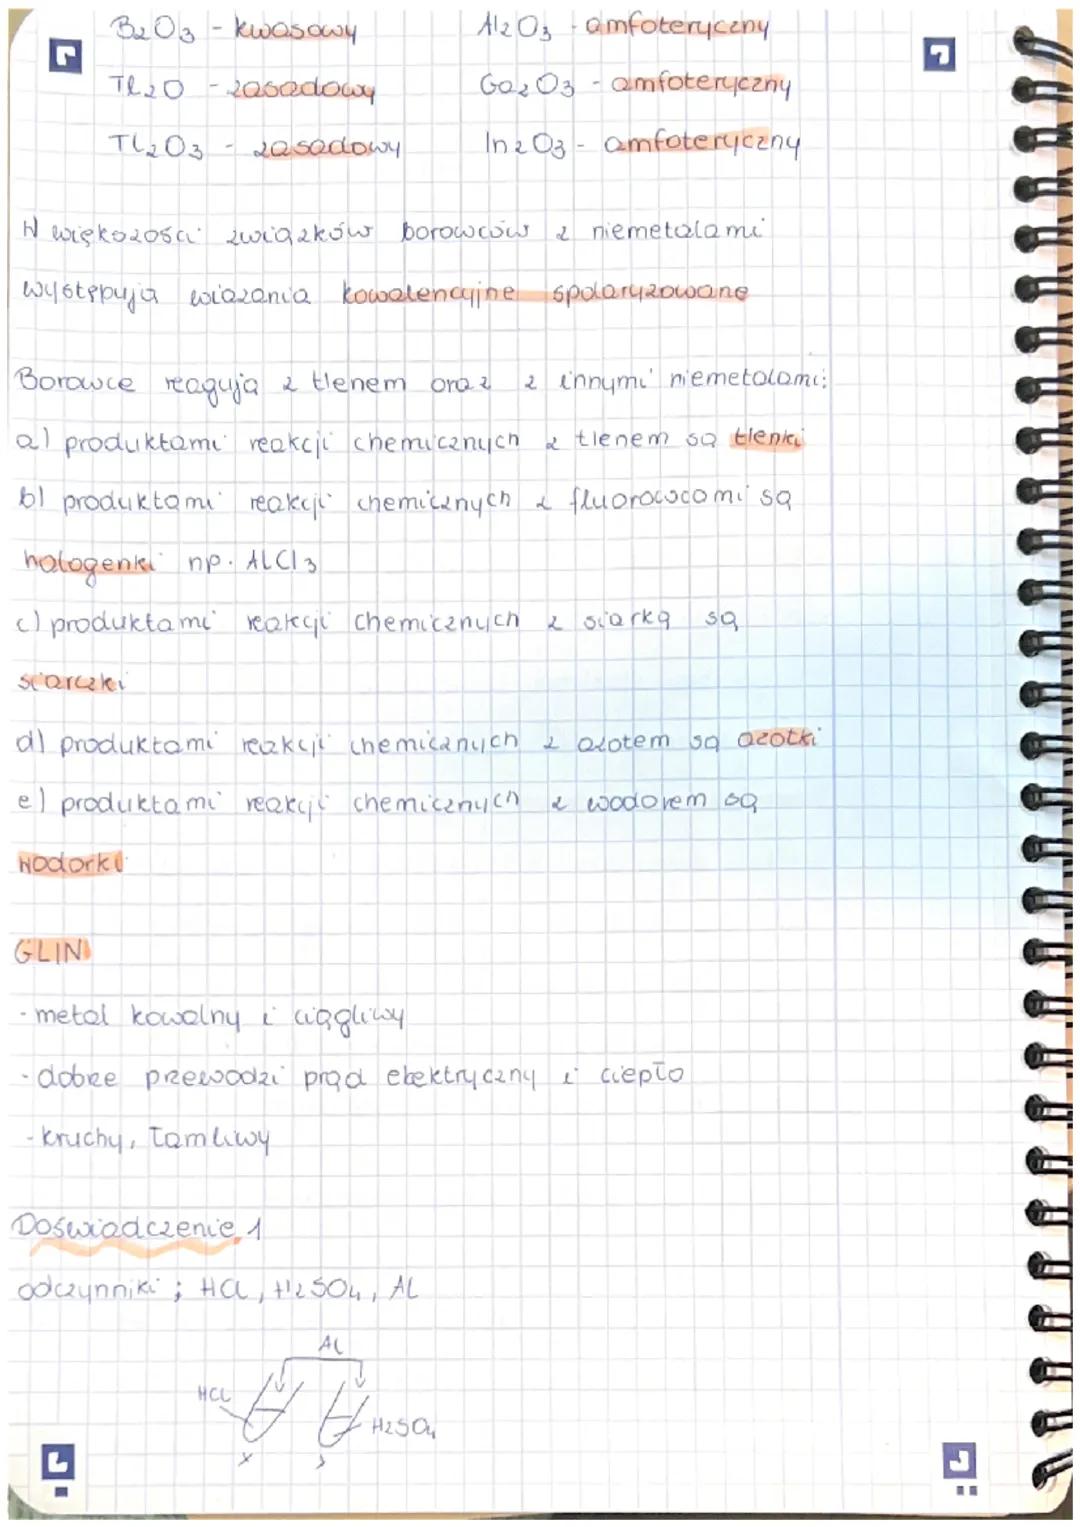 B2O3 - kwasowy Al2O3 - amfoteryczny
Tl2O - zasadowy Ga2O3 - amfoteryczny
Tl2O3 - zasadowy In2O3 - amfoteryczny
W większości związków borowców z niemetalami
występują wiązania kowalencyjne spolaryzowane
Borowce reagują z tlenem oraz z innymi niemetalami:
a) produktami reakcji chemicznych z tlenem są tlenki
b) produktami reakcji chemicznych z fluorowcami są
halogenki np. AlCl3
c) produktami reakcji chemicznych z siarką są
siarczki
d) produktami reakcji chemicznych z azotem są azotki
e) produktami reakcji chemicznych z wodorem są
wodorki
GLIN
- metal kowalny i ciągliwy
- dobrze przewodzi prąd elektryczny i ciepło
- kruchy, łamliwy
Doświadczenie 1
odczynniki ; HCl, H2SO4, Al
Al
HCl
H2SO4
x